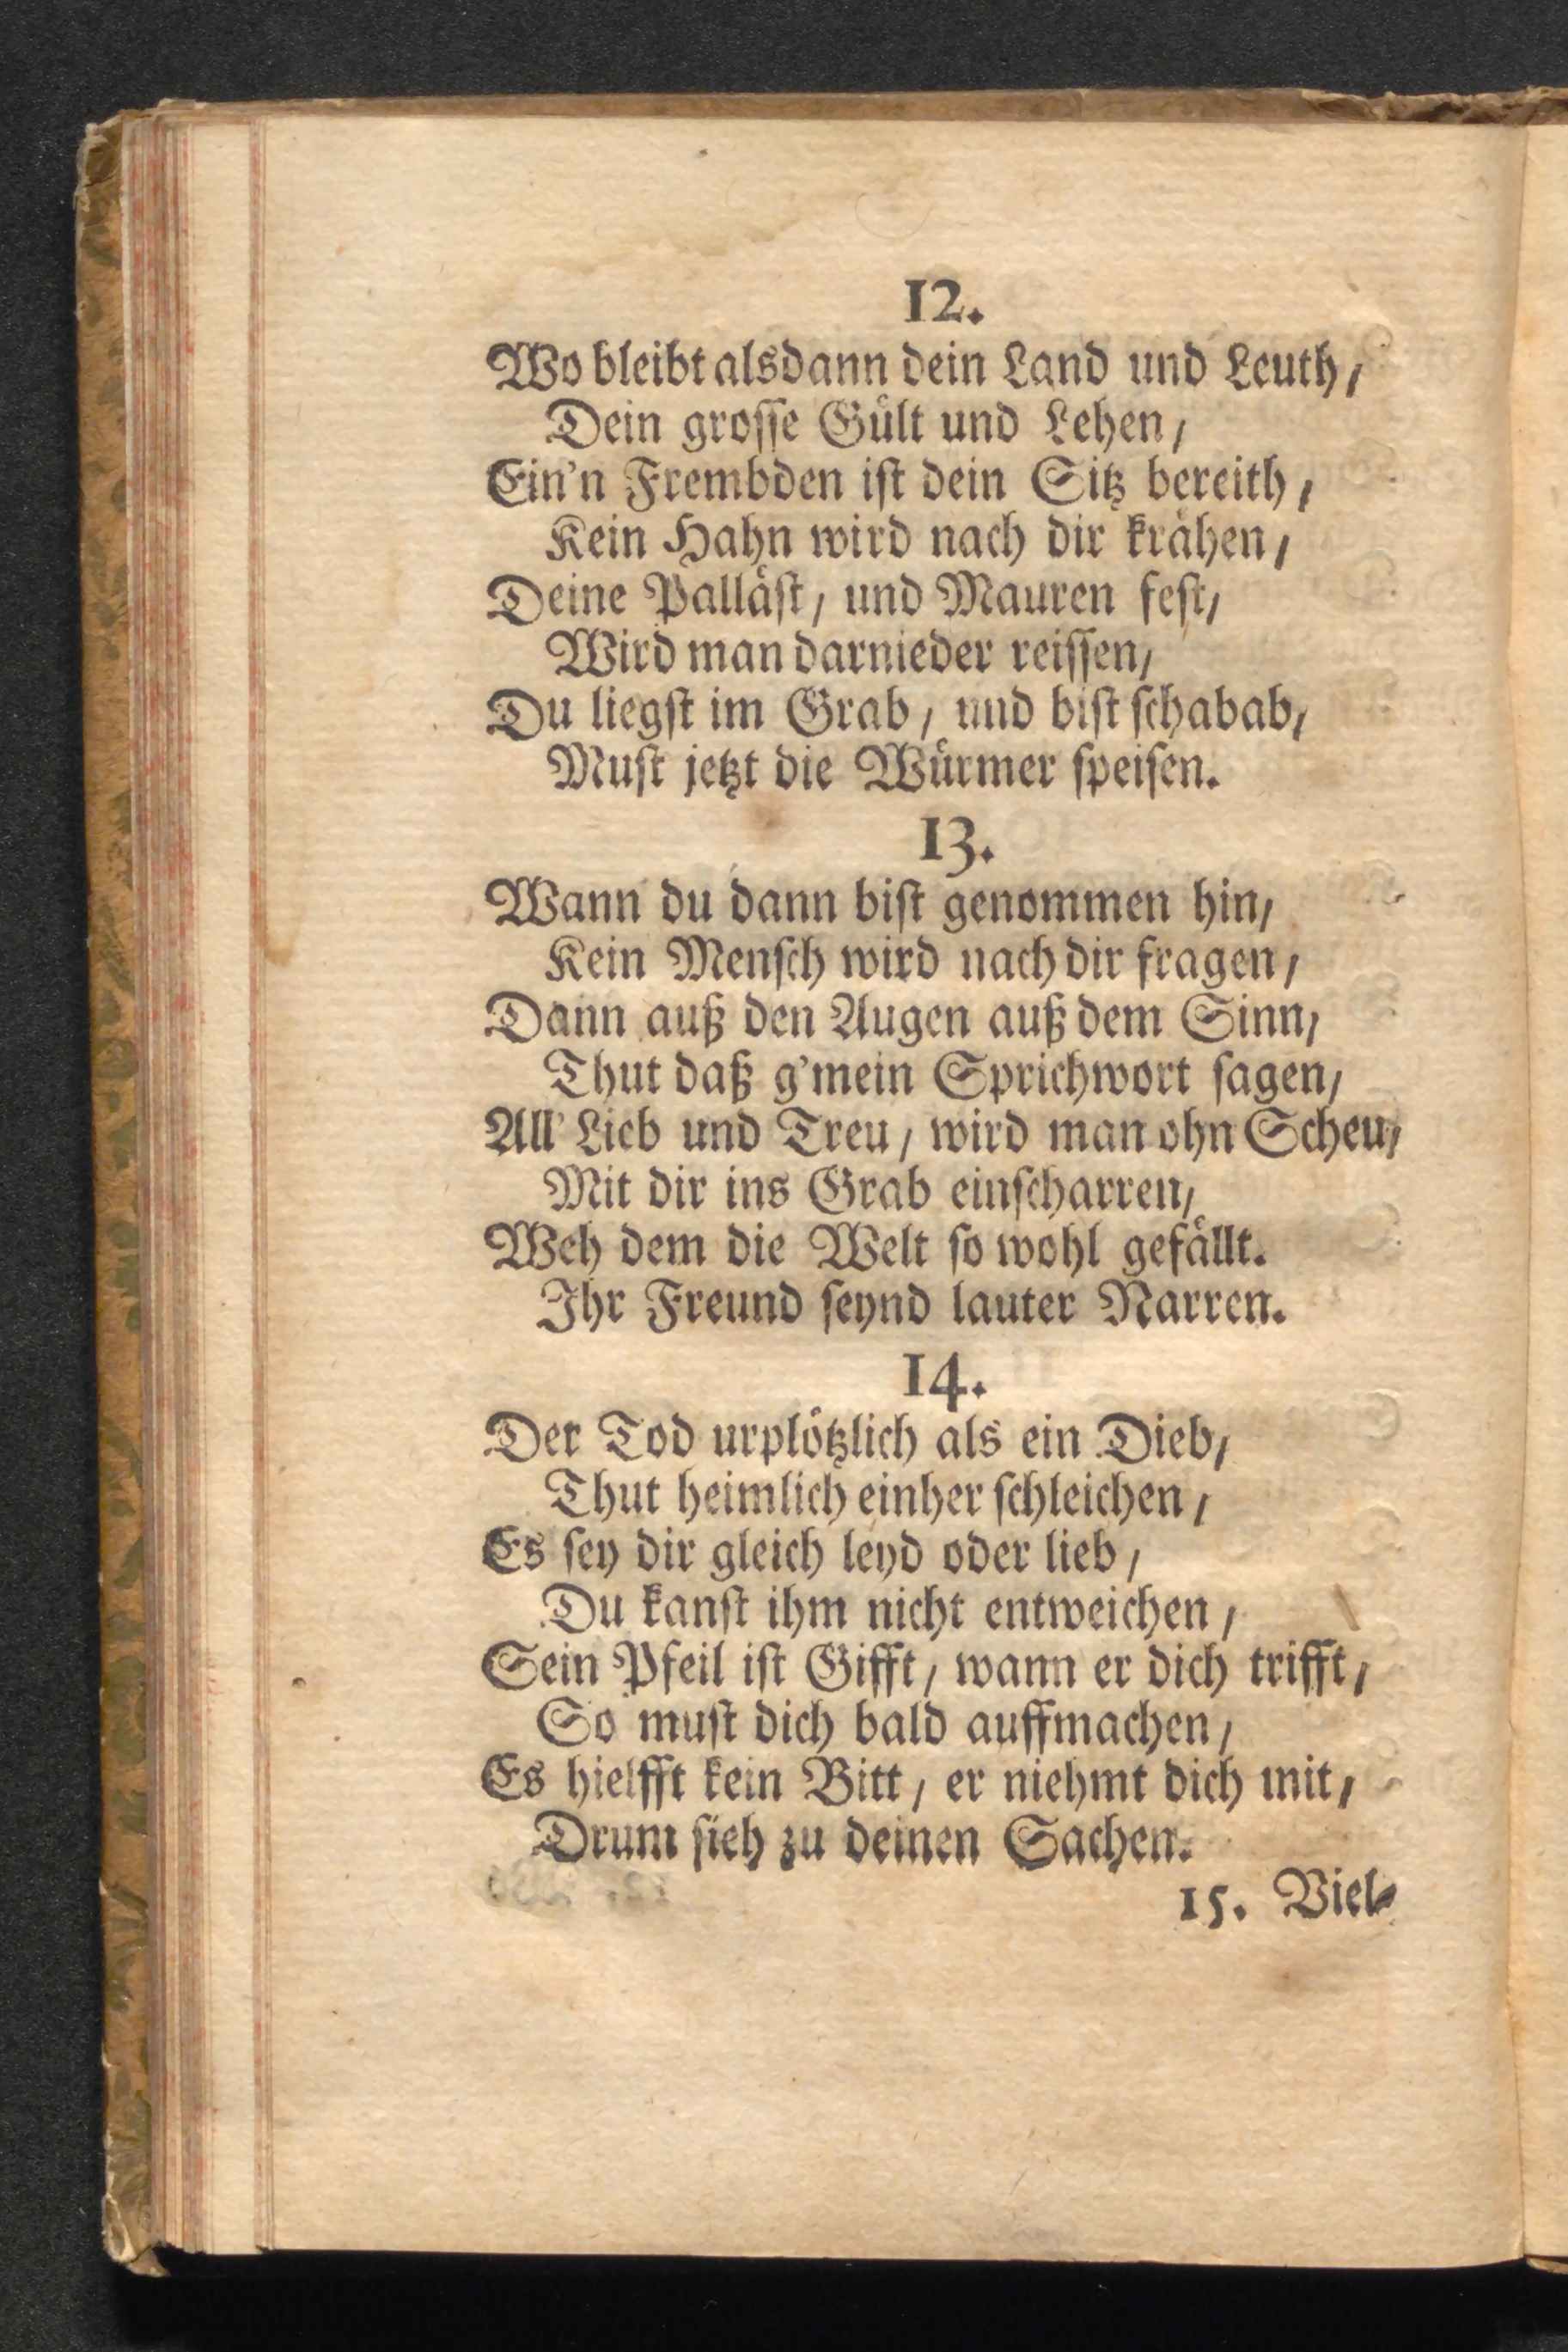 12.
Wo bleibt alsdann dein Land und Leuth /
Dein groſſe Guͤlt und Lehen /
Ein'n Frembden iſt dein Sitz bereith /
Kein Hahn wird nach dir kraͤhen /
Deine Pallaͤſt / und Mauren feſt /
Wird man darnieder reiſſen /
Du liegſt im Grab / und biſt ſchabab /
Muſt jetzt die Wuͤrmer ſpeiſen.
13.
Wann du dann biſt genommen hin /
Kein Menſch wird nach dir fragen /
Dann auß den Augen auß dem Sinn /
Thut daß g'mein Sprichwort ſagen /
All' Lieb und Treu / wird man ohn Scheu /
Mit dir ins Grab einſcharren /
Weh dem die Welt ſo wohl gefaͤllt.
Ihr Freund ſeynd lauter Narren.
14.
Der Tod urploͤtzlich als ein Dieb /
Thut heimlich einher ſchleichen /
Es ſey dir gleich leyd oder lieb /
Du kanſt ihm nicht entweichen /
Sein Pfeil iſt Gifft / wann er dich trifft /
So muſt dich bald auffmachen /
Es hielfft kein Bitt / er niehmt dich mit /
Drum ſieh zu deinen Sachen.
15. Viel-